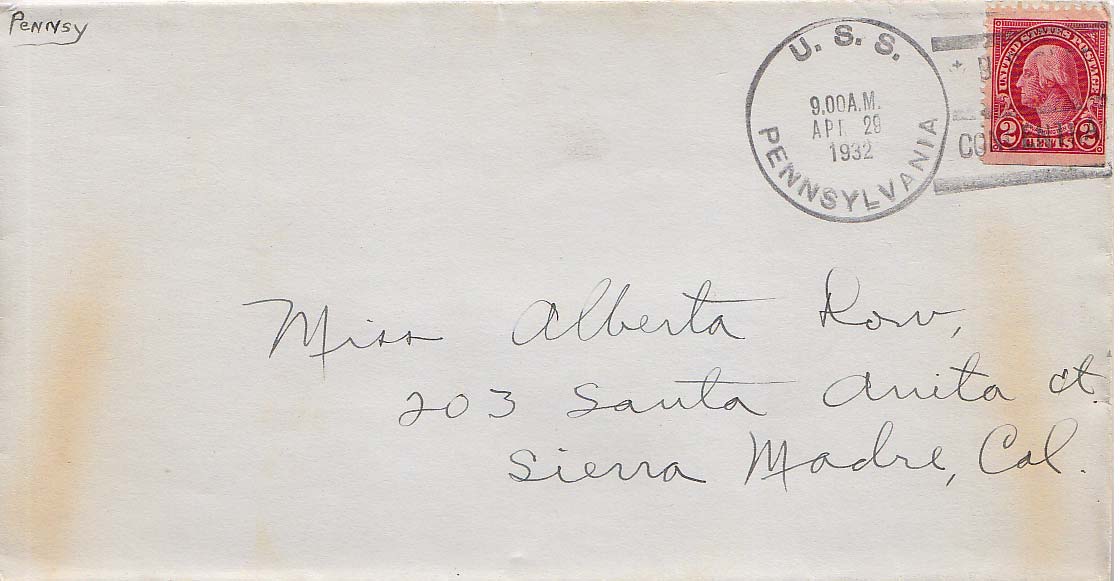 Pennsy
U. S. S.
9.00 A.M.
APR 29
1932
PENNSYLVANIA
UNITED STATES POSTAGE
2 CENTS 2
Miss Alberta Row,
203 Santa Anita Ct.
Sierra Madre, Cal.